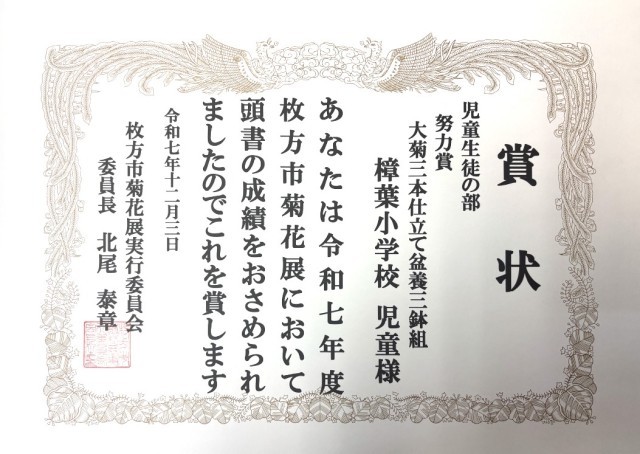 賞状
児童生徒の部
努力賞
大菊三本仕立て盆養三鉢組
樟葉小学校 児童様
あなたは令和七年度
枚方市菊花展において
頭書の成績をおさめられ
ましたのでこれを賞します
令和七年十二月三日
枚方市菊花展実行委員会
委員長 北尾 泰章